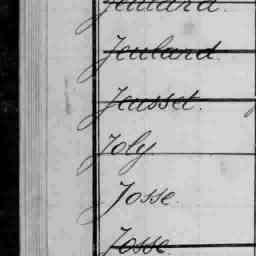 Jeulard.
Jeusset.
Joly
Josse.
Josse